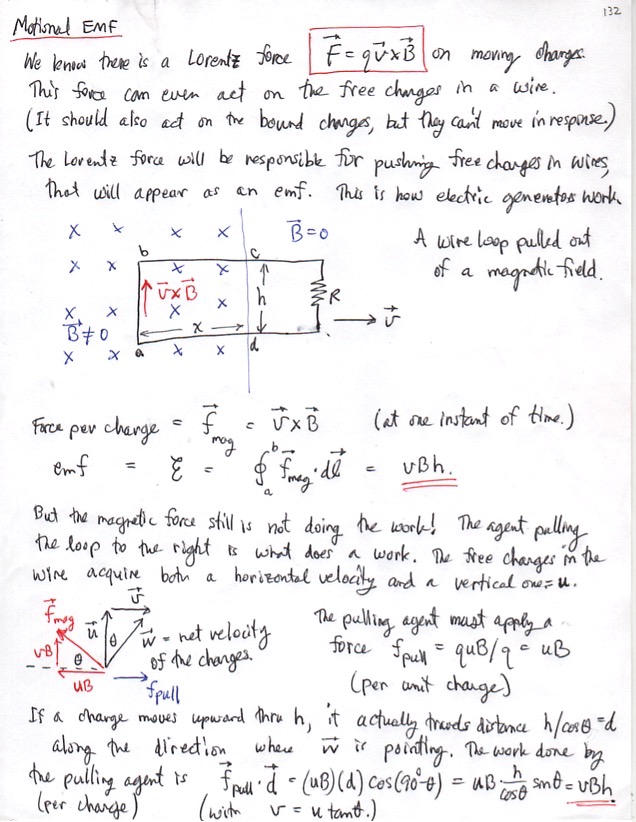 132
Motional EMF
We know there is a Lorentz force F⃗ = qv⃗×B⃗ on moving charges.
This force can even act on the free charges in a wire.
(It should also act on the bound charges, but they can't move in response.)
The Lorentz force will be responsible for pushing free charges in wires,
that will appear as an emf. This is how electric generators work.
x x x x B⃗=0
A wire loop pulled out
of a magnetic field.
b c
x x x x
v⃗×B⃗ h R
x x x x
x v⃗
B⃗≠0
a d
x x x x
Force per charge = f⃗mag = v⃗×B⃗ (at one instant of time.)
emf = ℰ = ∮ₐᵇ f⃗mag·dl⃗ = vBh.
But the magnetic force still is not doing the work! The agent pulling
the loop to the right is what does a work. The free charges in the
wire acquire both a horizontal velocity and a vertical one = u.
v⃗
f⃗mag u⃗ θ w⃗ = net velocity
of the charges.
vB θ
uB f⃗pull
The pulling agent must apply a
force f⃗pull = quB/q = uB
(per unit charge)
If a charge moves upward thru h, it actually travels distance h/cosθ = d
along the direction where w⃗ is pointing. The work done by
the pulling agent is f⃗pull·d⃗ = (uB)(d) cos(90°-θ) = uB·h/cosθ sinθ = vBh.
(per charge) (with v = u tanθ.)